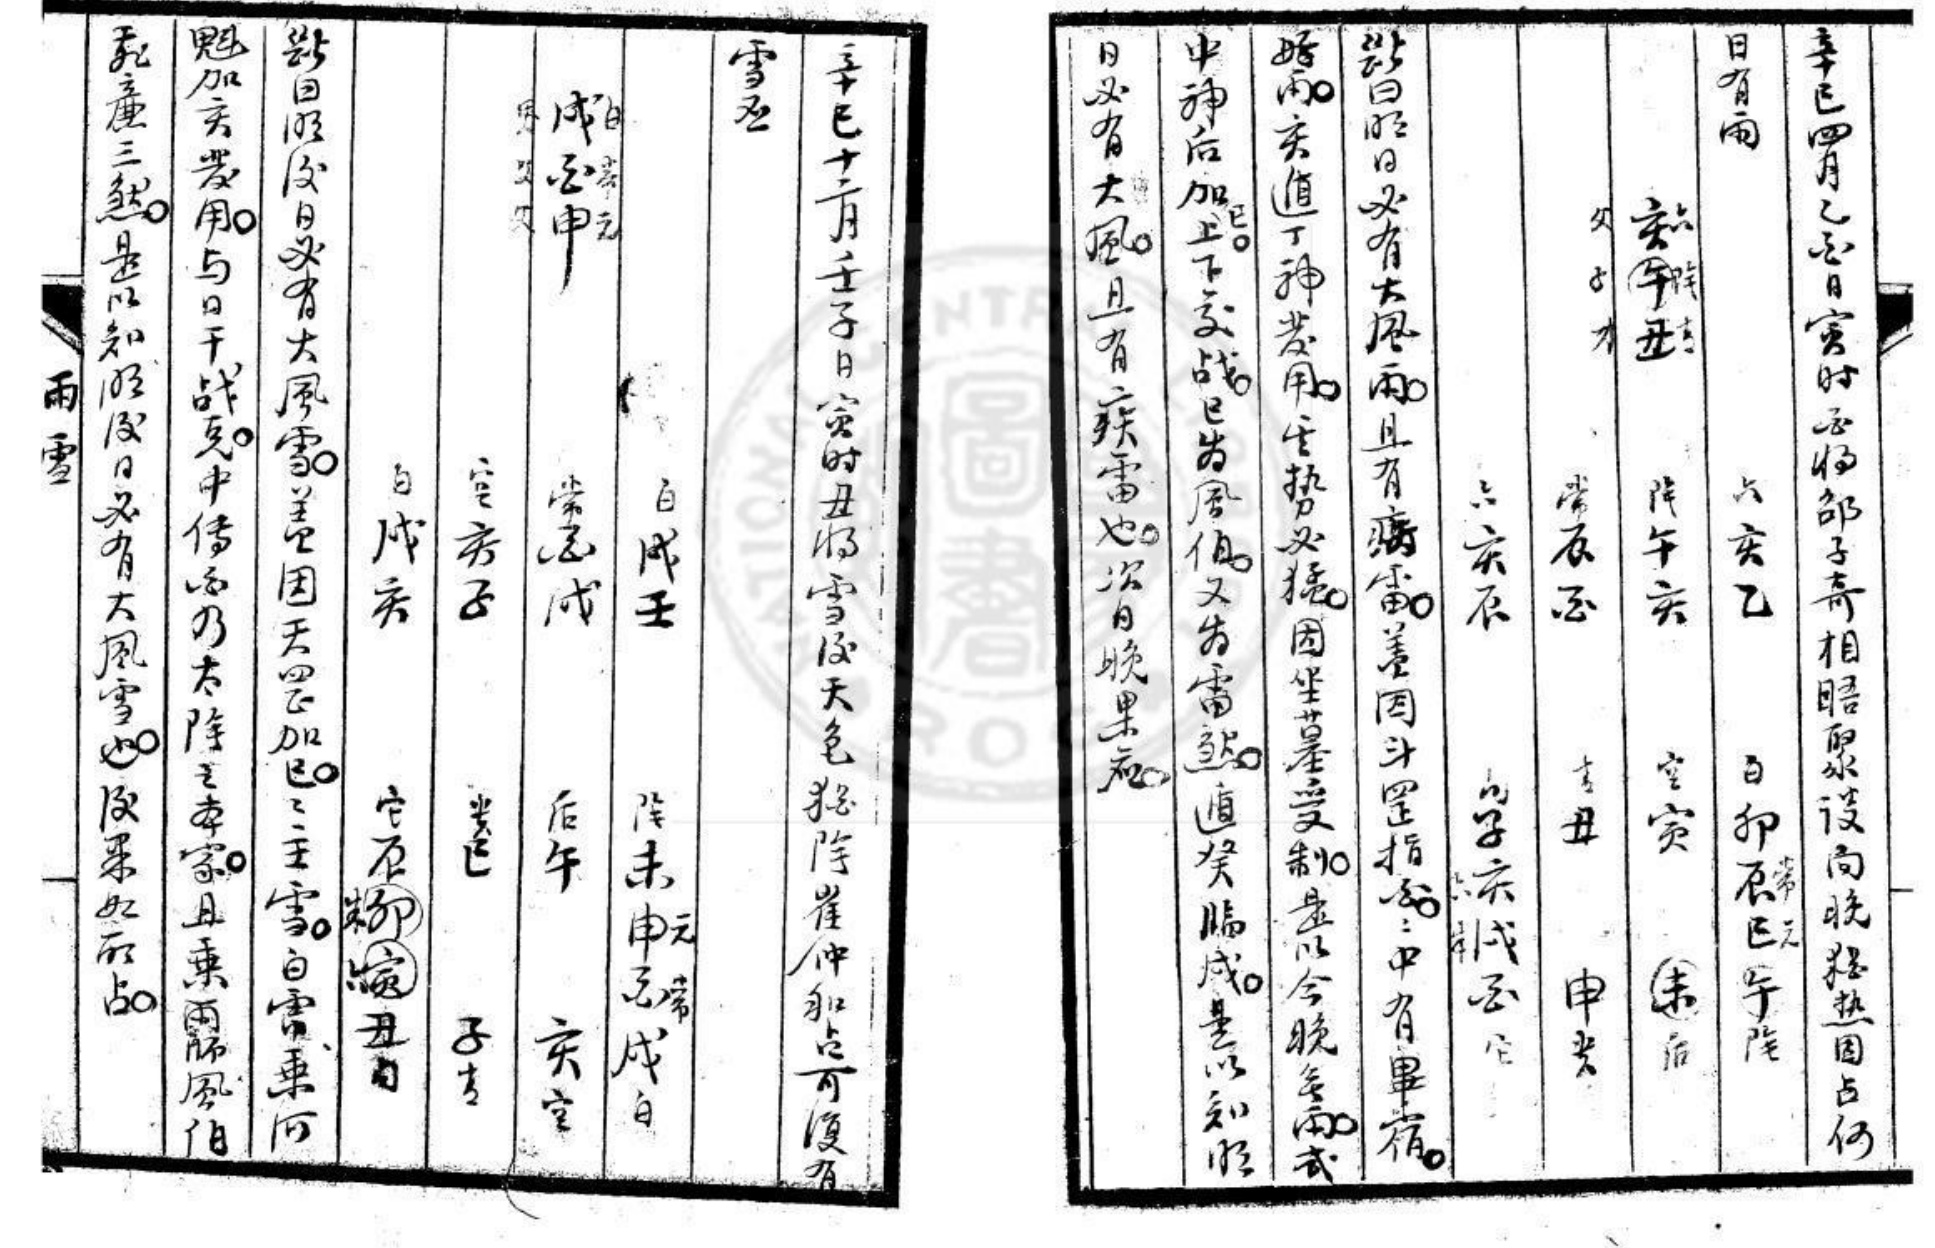 辛巳四月乙酉日寅时酉将邵子奇相晤聚谈向晚犹热因占何
日有雨
六 陰 青
亥 午 丑
父 子 才
六亥乙 白卯辰常巳元午陰
陰午亥 空寅 未后
常辰酉 青丑 申贵
六亥辰 白子亥六戌酉空
断曰明日必有大風雨且有霹雷盖因斗罡指酉酉中有畢宿
好雨亥遁丁神發用雨势必猛因坐墓受制是以今晚無雨或
中神后加巳上下交战巳为風伯又为雷煞遁癸臨戌是以知明
日必有大風且有疾雷也次日晚果应
辛巳十二月壬子日寅时丑将雪后天色猶陰崔仲和占可復有
雪否
白 常 元
戌 酉 申
父 父
白戌壬 陰未申元酉常戌白
常酉戌 后午 亥空
空亥子 贵巳 子青
白戌亥 辰卯寅丑
断曰明后日必有大風雪盖因天罡加巳巳主雪白雪乘河
魁加亥發用与日干战克中傳酉乃太陰之本家且乘雨師風伯
飛廉三煞是以知明后日必有大風雪也后果如所占
雨雪